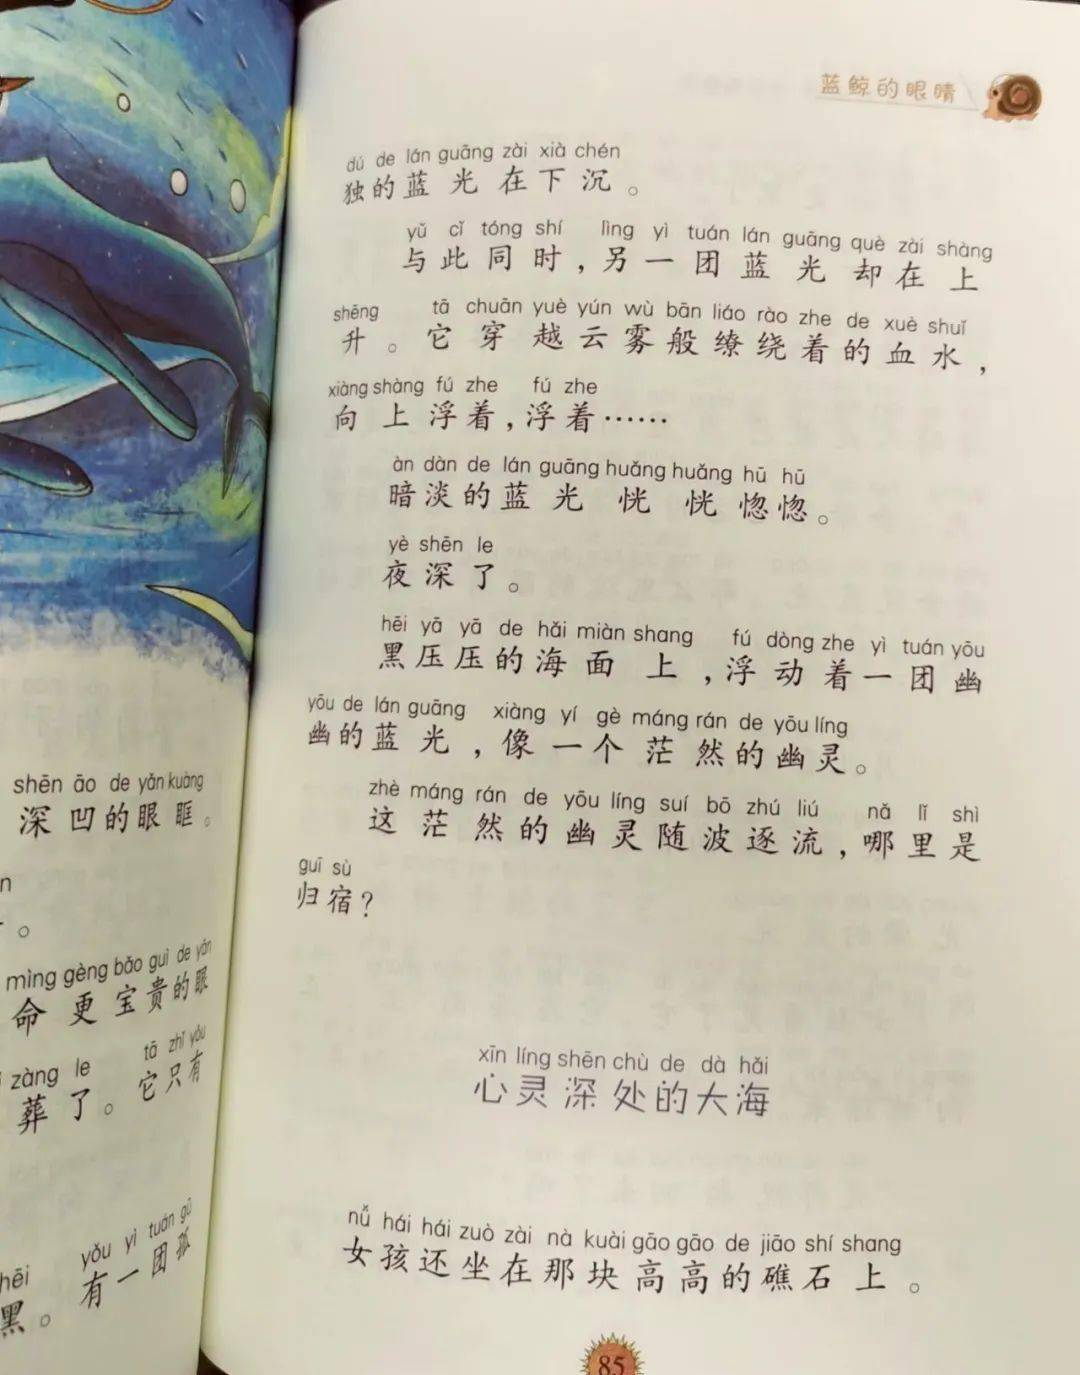 shēn āo de yǎn kuàng
深凹的眼眶。
n
。
mìng gèng bǎo guì de yǎn
命更宝贵的眼
zàng le tā zhǐ yǒu
葬了。它只有
hēi yǒu yì tuán gū
黑。有一团孤
蓝鲸的眼睛
dú de lán guāng zài xià chén
独的蓝光在下沉。
yǔ cǐ tóng shí lìng yì tuán lán guāng què zài shàng
与此同时,另一团蓝光却在上
shēng tā chuān yuè yún wù bān liáo rào zhe de xuè shuǐ
升。它穿越云雾般缭绕着的血水,
xiàng shàng fú zhe fú zhe
向上浮着,浮着……
àn dàn de lán guāng huǎng huǎng hū hū
暗淡的蓝光恍恍惚惚。
yè shēn le
夜深了。
hēi yā yā de hǎi miàn shang fú dòng zhe yì tuán yōu
黑压压的海面上,浮动着一团幽
yōu de lán guāng xiàng yí gè máng rán de yōu líng
幽的蓝光,像一个茫然的幽灵。
zhè máng rán de yōu líng suí bō zhú liú nǎ lǐ shì
这茫然的幽灵随波逐流,哪里是
guī sù
归宿?
xīn líng shēn chù de dà hǎi
心灵深处的大海
nǚ hái hái zuò zài nà kuài gāo gāo de jiāo shí shang
女孩还坐在那块高高的礁石上。
85